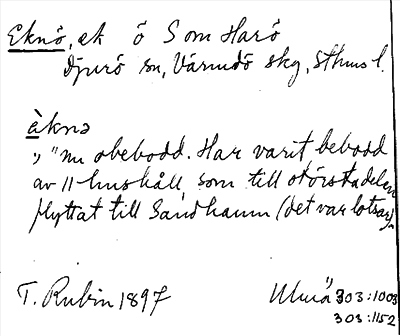 Eknö, ek ö S om Harö
Djurö sn, Värmdö skg, Sthms l.
àknə
„ "nu obebodd. Har varit bebodd
av 11 hushåll, som till största delen
flyttat till Sandhamn (det var lotsar)"
T. Rubin 1897
303:1003
303:1152